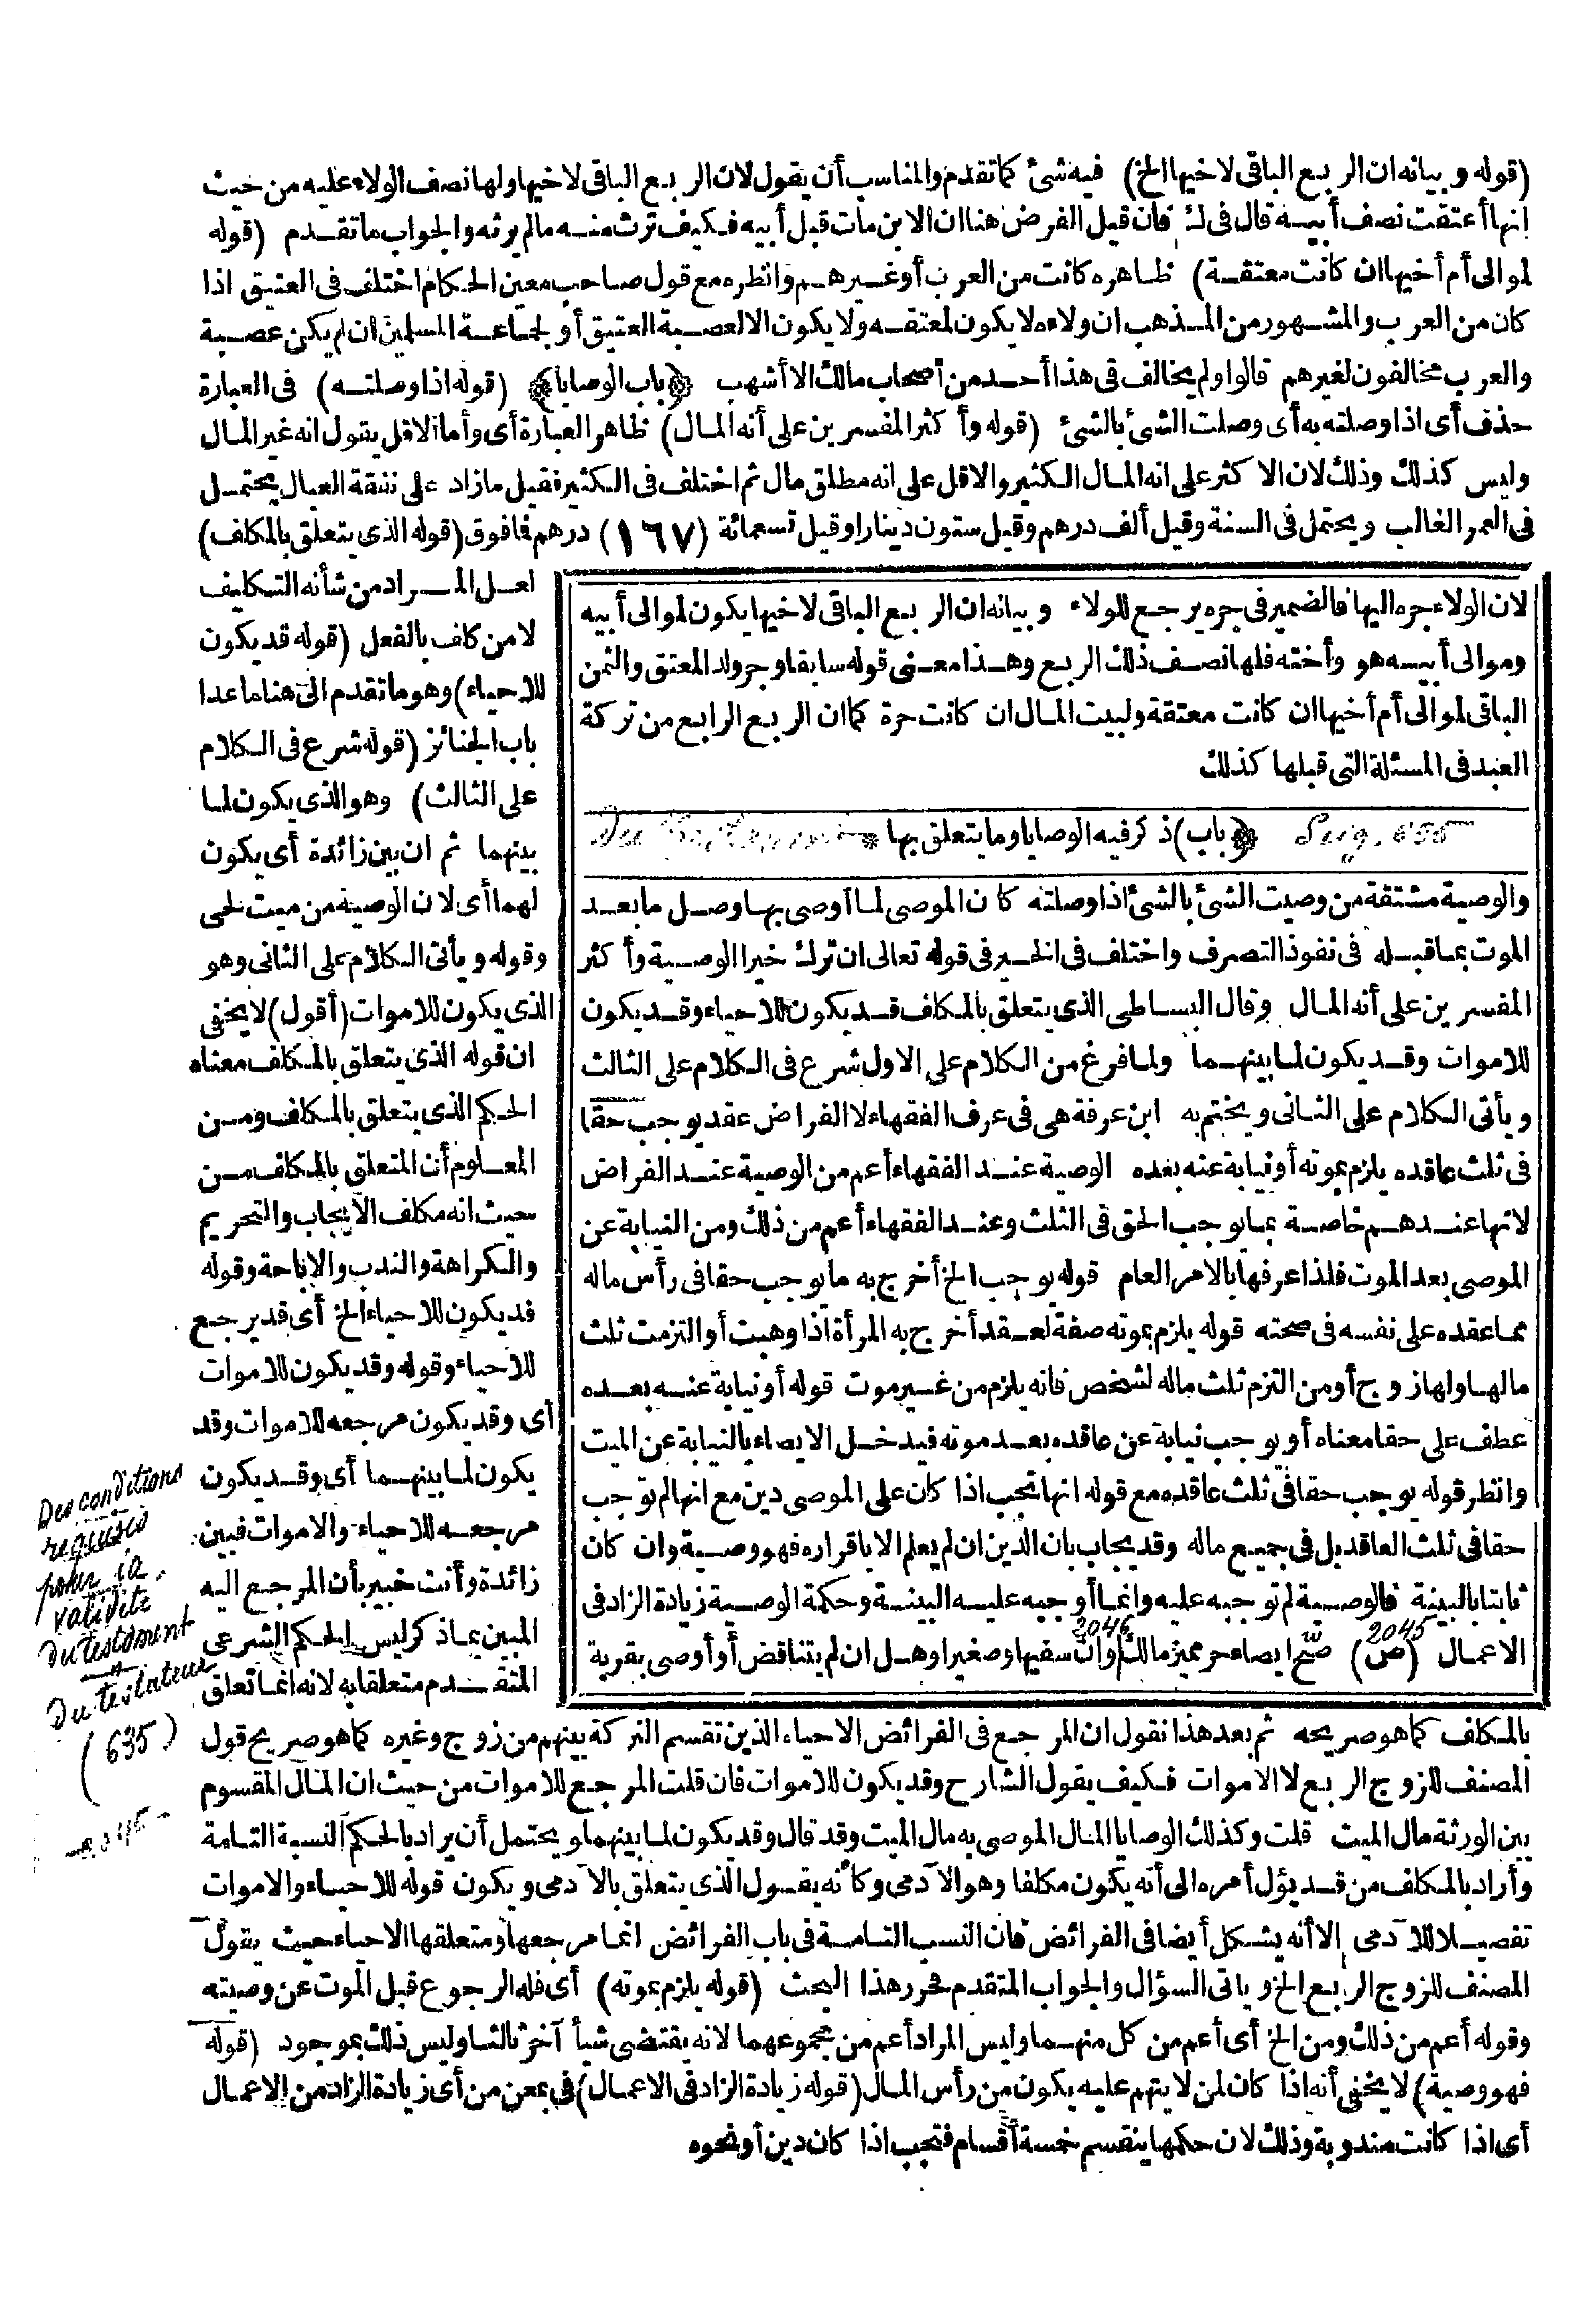 (قوله وبيانه ان الربع الباقى لاخيها الخ) فيه شئ كما تقدم والمناسب أن يقول لان الربع الباقى لاخيها ولها نصف الولاء عليه من حيث
انها أعتقت نصف أبيه قال فى ك فان قيل الفرض هنا ان الابن مات قبل أبيه فكيف ترث منه مالم يرثه والجواب ما تقدم (قوله
لموالى أم أخيها ان كانت معتقة) ظاهره كانت من العرب أو غيرهم وانظره مع قول صاحب معين الحكام اختلف فى العتيق اذا
كان من العرب والمشهور من المذهب ان ولاءه لا يكون لمعتقه ولا يكون الا لعصبة العتيق أو لجماعة المسلمين ان لم يكن عصبة
والعرب مخالفون لغيرهم قالوا ولم يخالف فى هذا أحد من أصحاب مالك الا أشهب ﴿باب الوصايا﴾ (قوله اذا وصلته) فى العبارة
حذف أى اذا وصلته به أى وصلت الشئ بالشئ (قوله وأكثر المفسرين على أنه المال) ظاهر العبارة أى وأما الاقل يقول انه غير المال
وليس كذلك وذلك لان الاكثر على انه المال الكثير والاقل على انه مطلق مال ثم اختلف فى الكثير فقيل ما زاد على نفقة العيال يحتمل
فى العمر الغالب ويحتمل فى السنة وقيل ألف درهم وقيل ستون دينارا وقيل تسعمائة (١٦٧) درهم فافوق (قوله الذى يتعلق بالمكلف)
لعل المراد من شأنه التكليف
لا من كلف بالفعل (قوله قد يكون
للاحياء) وهو ما تقدم الى هنا ما عدا
باب الجنائز (قوله شرع فى الكلام
على الثالث) وهو الذى يكون لما
بينهما ثم ان بين زائدة أى يكون
لهما أى لان الوصية من ميت لحى
وقوله ويأتى الكلام على الثانى وهو
الذى يكون للاموات (أقول) لا يخفى
ان قوله الذى يتعلق بالمكلف معناه
الحكم الذى يتعلق بالمكلف ومن
المعلوم أن المتعلق بالمكلف من
حيث انه مكلف الايجاب والتحريم
والكراهة والندب والاباحة وقوله
قد يكون للاحياء الخ أى قد يرجع
للاحياء وقوله وقد يكون للاموات
أى وقد يكون مرجعه للاموات وقد
يكون لما بينهما أى وقد يكون
مرجعه للاحياء والاموات فبين
زائدة وأنت خبير بأن المرجع اليه
المبين بما ذكر ليس الحكم الشرعى
المتقدم متعلقا به لانه انما تعلق
لان الولاء جره اليها فالضمير فى جره يرجع للولاء وبيانه ان الربع الباقى لاخيها يكون لموالى أبيه
وموالى أبيه هو وأخته فلها نصف ذلك الربع وهذا معنى قوله سابقا وجر ولد المعتق والثمن
الباقى لموالى أم أخيها ان كانت معتقة ولبيت المال ان كانت حرة كما ان الربع الرابع من تركة
العبد فى المسئلة التى قبلها كذلك
Seig. 635 ﴿باب) ذكر فيه الوصايا وما يتعلق بها * Du Testament
والوصية مشتقة من وصيت الشئ بالشئ اذا وصلته كان الموصى لما أوصى بها وصل ما بعد
الموت بما قبله فى نفوذ التصرف واختلف فى الخير فى قوله تعالى ان ترك خيرا الوصية وأكثر
المفسرين على أنه المال وقال البساطى الذى يتعلق بالمكلف قد يكون للاحياء وقد يكون
للاموات وقد يكون لما بينهما ولما فرغ من الكلام على الاول شرع فى الكلام على الثالث
ويأتى الكلام على الثانى ويختم به ابن عرفة هى فى عرف الفقهاء لا الفراض عقد يوجب حقا
فى ثلث عاقده يلزم بموته أو نيابة عنه بعده الوصية عند الفقهاء أعم من الوصية عند الفراض
لانها عندهم خاصة بما يوجب الحق فى الثلث وعند الفقهاء أعم من ذلك ومن النيابة عن
الموصى بعد الموت فلذا عرفها بالامر العام قوله يوجب الخ أخرج به ما يوجب حقا فى رأس ماله
مما عقده على نفسه فى صحته قوله يلزم بموته صفة لعقد أخرج به المرأة اذا وهبت أو التزمت ثلث
مالها ولها زوج أو من التزم ثلث ماله لشخص فانه يلزم من غير موت قوله أو نيابة عنه بعده
عطف على حقا معناه أو يوجب نيابة عن عاقده بعد موته فيدخل الايصاء بالنيابة عن الميت
وانظر قوله يوجب حقا فى ثلث عاقده مع قوله انها تجب اذا كان على الموصى دين مع انها لم توجب
حقا فى ثلث العاقد بل فى جميع ماله وقد يجاب بان الدين ان لم يعلم الا باقراره فهو وصية وان كان
ثابتا بالبينة فالوصية لم توجبه عليه وانما أوجبه عليه البينة وحكمة الوصية زيادة الزاد فى
الاعمال (ص) 2045 صح ايصاء حر مميز مالك 2046 وان سفيها وصغيرا وهل ان لم يتناقض أو أوصى بقربة
بالمكلف كما هو صريحه ثم بعد هذا نقول ان المرجع فى الفرائض الاحياء الذين تقسم التركة بينهم من زوج وغيره كما هو صريح قول
المصنف للزوج الربع لا الاموات فكيف يقول الشارح وقد يكون للاموات فان قلت المرجع للاموات من حيث ان المال المقسوم
بين الورثة مال الميت قلت وكذلك الوصايا المال الموصى به مال الميت وقد قال وقد يكون لما بينهما ويحتمل أن يراد بالحكم النسبة التامة
وأراد بالمكلف من قد يؤل أمره الى أنه يكون مكلفا وهو الآدمى وكأنه يقول الذى يتعلق بالآدمى ويكون قوله للاحياء والاموات
تفصيلا للآدمى الا أنه يشكل أيضا فى الفرائض فان النسب التامة فى باب الفرائض انما مرجعها ومتعلقها الاحياء حيث يقول
المصنف للزوج الربع الخ وياتى السؤال والجواب المتقدم فحرر هذا البحث (قوله يلزم بموته) أى فله الرجوع قبل الموت عن وصيته
وقوله أعم من ذلك ومن الخ أى أعم من كل منهما وليس المراد أعم من مجموعهما لانه يقتضى شيأ آخر ثالثا وليس ذلك بموجود (قوله
فهو وصية) لا يخفى أنه اذا كان لمن لا يتهم عليه يكون من رأس المال (قوله زيادة الزاد فى الاعمال) فى بمعنى من أى زيادة الزاد من الاعمال
أى اذا كانت مندوبة وذلك لان حكمها ينقسم خمسة أقسام فتجب اذا كان دين أو نحوه
Des conditions
requises
pour la
validité
du testament
Du testateur
(635)
2045